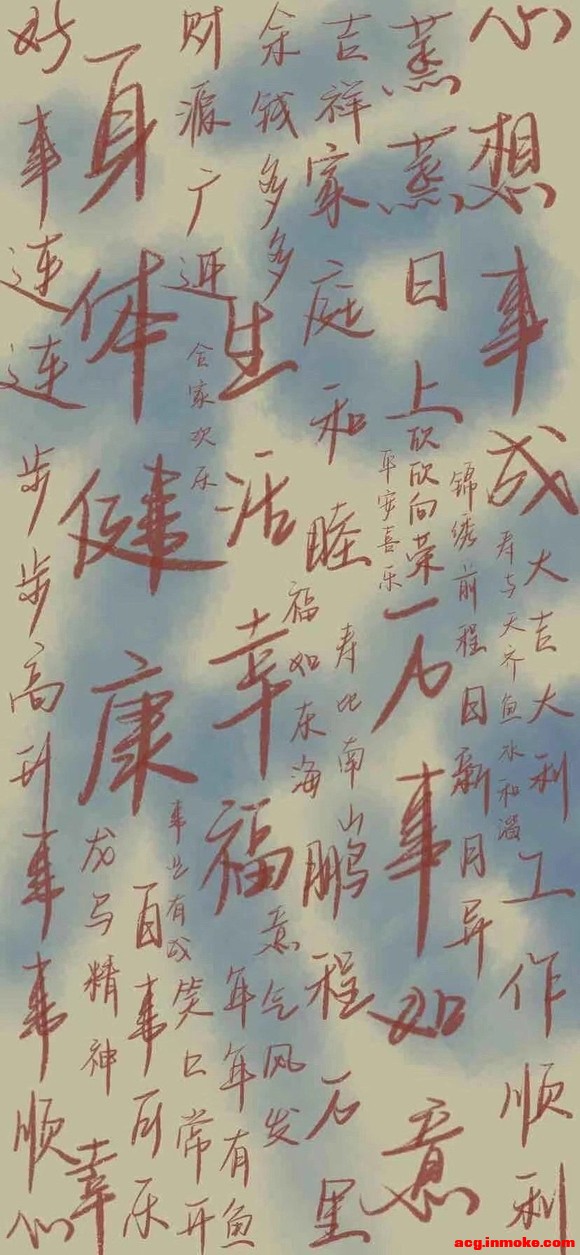 心想事成
大吉大利
工作顺利
寿与天齐
鱼水和谐
锦绣前程
日新月异
蒸蒸日上
欣欣向荣
万事如意
平安喜乐
吉祥家庭和睦
寿比南山
鹏程万里
福如东海
余钱多多
生活幸福
意气风发
年年有鱼
财源广进
合家欢乐
事业有成
笑口常开
身体健康
百事可乐
龙马精神
幸
好事连连
步步高升
事事顺心
acg.inmoke.com